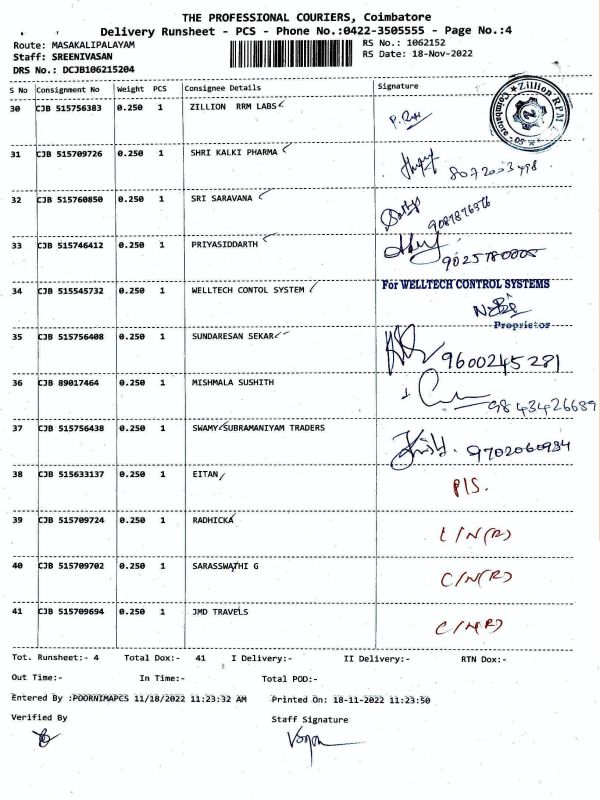 THE PROFESSIONAL COURIERS, Coimbatore
Delivery Runsheet - PCS - Phone No.:0422-3505555 - Page No.:4
Route: MASAKALIPALAYAM
RS No.: 1062152
Staff: SREENIVASAN
RS Date: 18-Nov-2022
DRS No.: DCJB106215204
S No Consignment No Weight PCS Consignee Details Signature
30 CJB 515756383 0.250 1 ZILLION RRM LABS
Zillion RPM
31 CJB 515709726 0.250 1 SHRI KALKI PHARMA
8072003498
32 CJB 515760850 0.250 1 SRI SARAVANA
9087876376
33 CJB 515746412 0.250 1 PRIYASIDDARTH
9025780005
34 CJB 515545732 0.250 1 WELLTECH CONTOL SYSTEM
For WELLTECH CONTROL SYSTEMS
Proprietor
35 CJB 515756408 0.250 1 SUNDARESAN SEKAR
9600245281
36 CJB 89017464 0.250 1 MISHMALA SUSHITH
9843426689
37 CJB 515756438 0.250 1 SWAMY SUBRAMANIYAM TRADERS
9702060934
38 CJB 515633137 0.250 1 EITAN
P/S.
39 CJB 515709724 0.250 1 RADHICKA
L/N(R)
40 CJB 515709702 0.250 1 SARASSWATHI G
C/N(R)
41 CJB 515709694 0.250 1 JMD TRAVELS
C/N(R)
Tot. Runsheet:- 4 Total Dox:- 41 I Delivery:- II Delivery:- RTN Dox:-
Out Time:- In Time:- Total POD:-
Entered By :POORNIMAPCS 11/18/2022 11:23:32 AM Printed On: 18-11-2022 11:23:50
Verified By Staff Signature